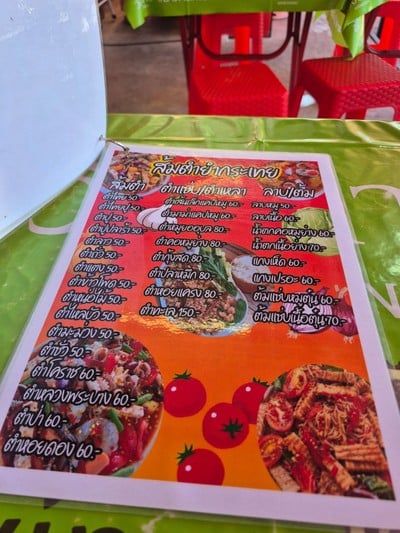 ส้มตำยำกระเทย
ส้มตำ
ตำไทย 50.-
ตำไทยปู 50.-
ตำปู 50.-
ตำปูปลาร้า 50.-
ตำลาว 50.-
ตำถั่ว 50.-
ตำแตง 50.-
ตำข้าวโพด 50.-
ตำหน่อไม้ 50.-
ตำไหลบัว 50.-
ตำมะม่วง 50.-
ตำซั่ว 50.-
ตำโคราช 60.-
ตำหลวงพระบาง 60.-
ตำป่า 60.-
ตำหอยดอง 60.-
ตำแซ่บ/ตำเหลา
ตำมาม่าแคปหมู 60.-
ตำหมูยออุบล 80.-
ตำคอหมูย่าง 80.-
ตำกุ้งสด 80.-
ตำปลาหมึก 80.-
ตำหอยแครง 80.-
ตำทะเล 150.-
ลาบ/ต้ม
ลาบหมู 50.-
ลาบเนื้อ 60.-
น้ำตกคอหมูย่าง 60.-
น้ำตกเนื้อย่าง 70.-
แกงเห็ด 60.-
แกงเปรอะ 60.-
ต้มแซ่บหมูตุ๋น 60.-
ต้มแซ่บเนื้อตุ๋น 70.-